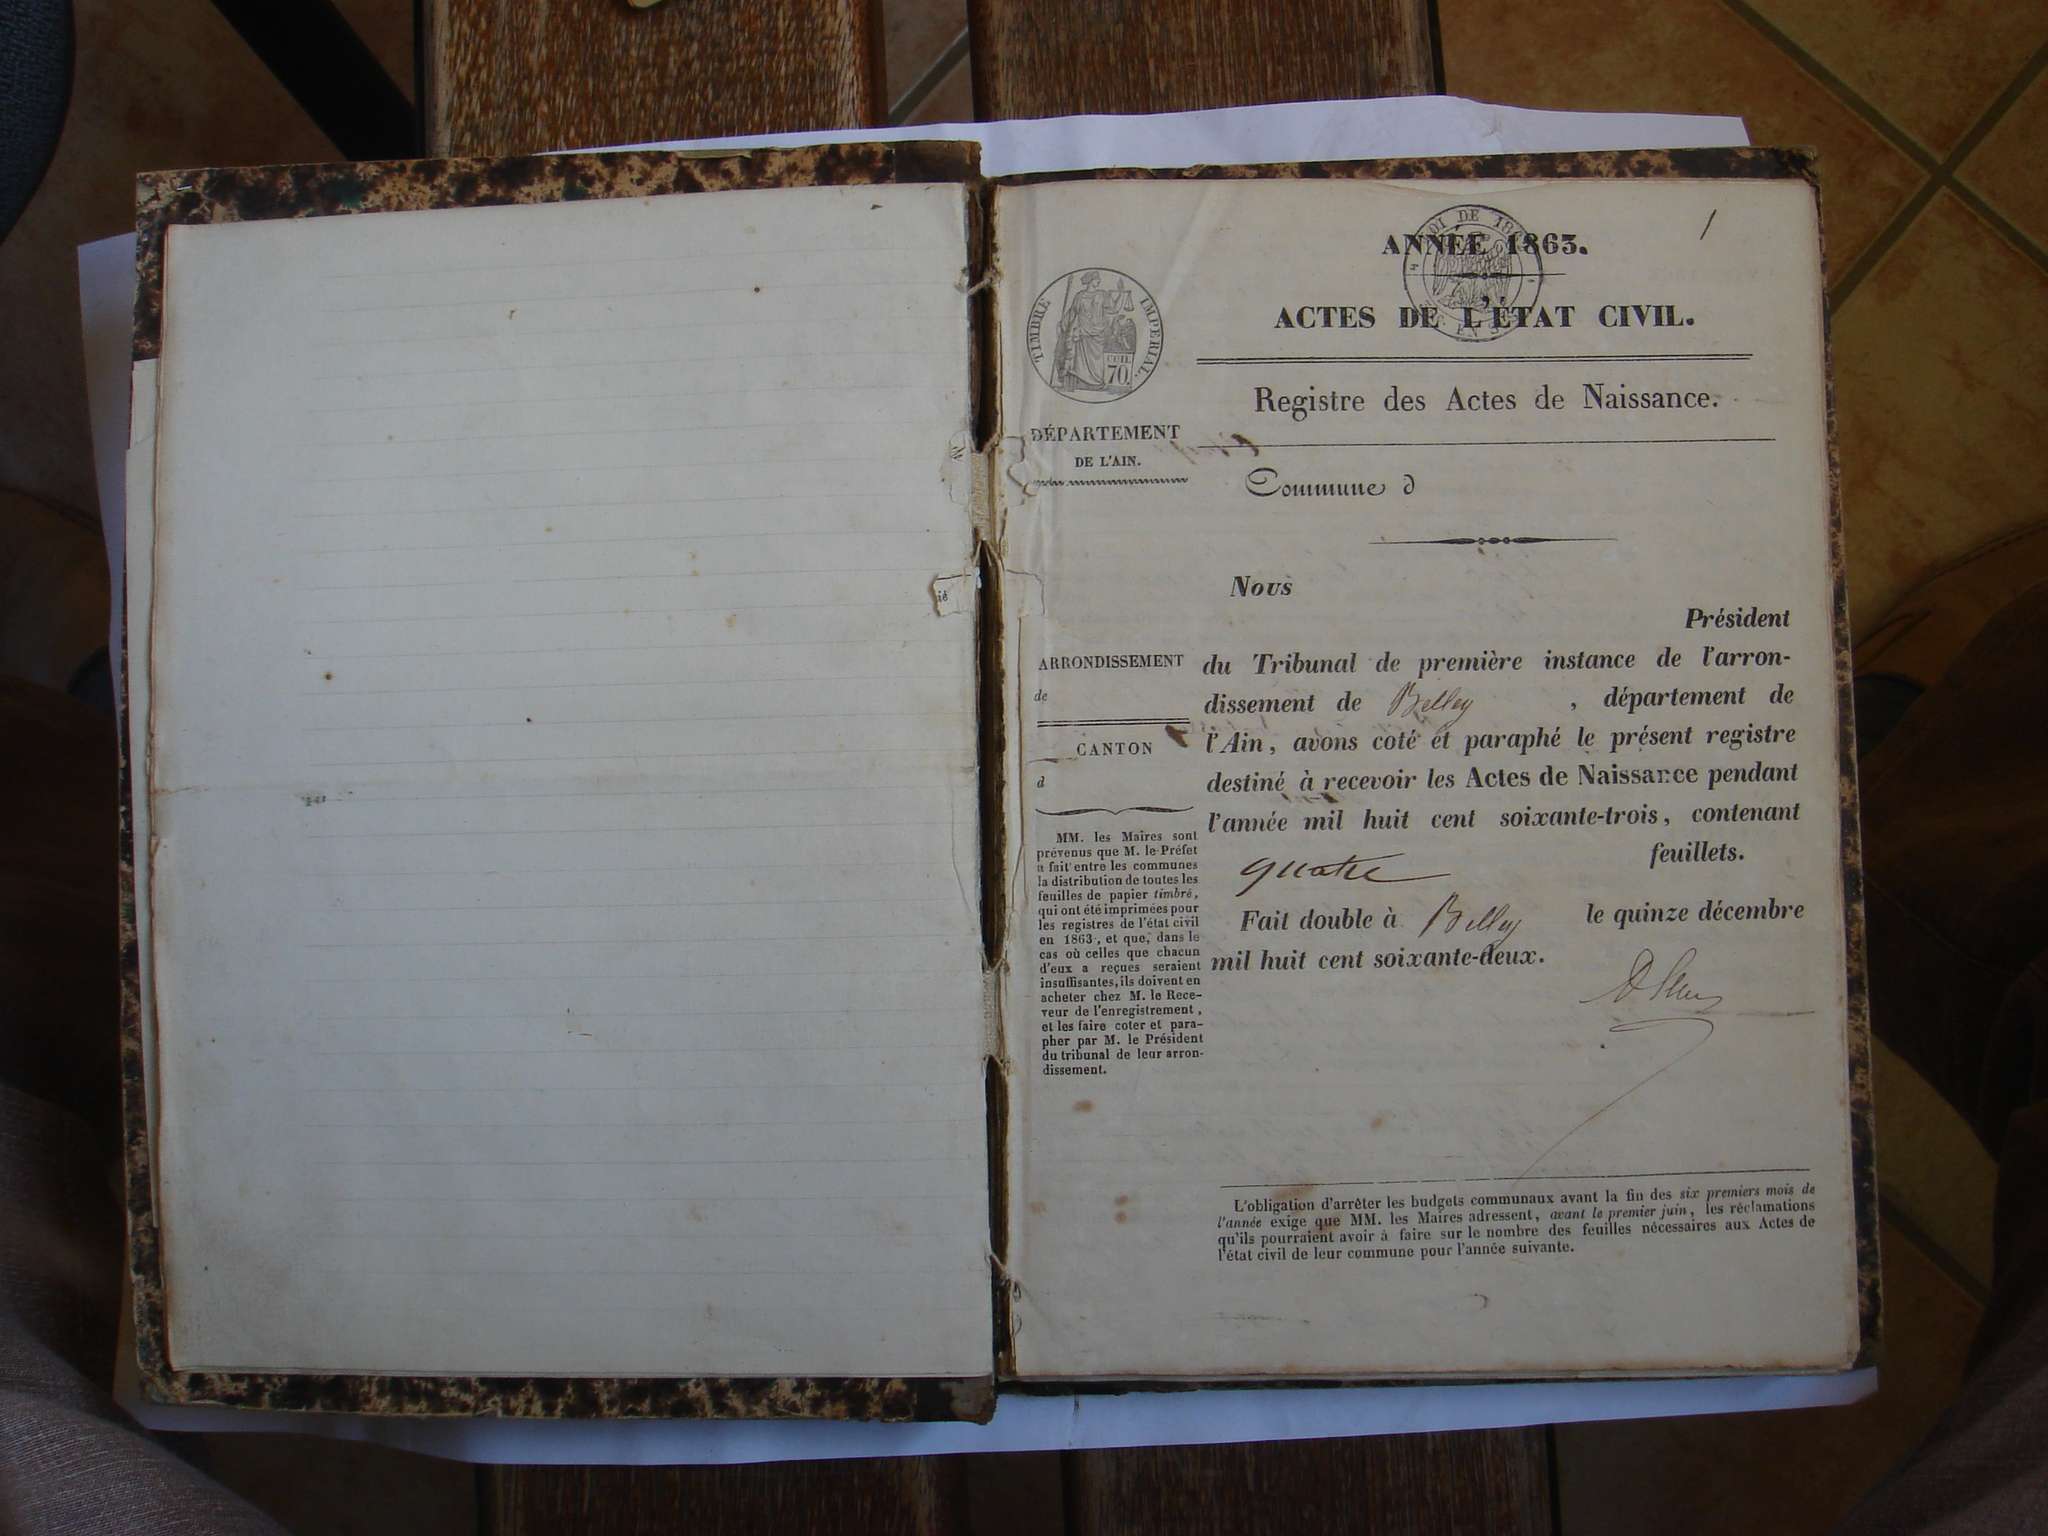 1
LOI DE
ANNÉE 1863.
TIMBRE IMPÉRIAL.
70.
ACTES DE L'ÉTAT CIVIL.
Registre des Actes de Naissance.
DÉPARTEMENT
DE L'AIN.
Commune d
Nous
Président
ARRONDISSEMENT
de
CANTON
d
du Tribunal de première instance de l'arron-
dissement de Belley , département de
l'Ain, avons coté et paraphé le présent registre
destiné à recevoir les Actes de Naissance pendant
l'année mil huit cent soixante-trois, contenant
quatre feuillets.
Fait double à Belley le quinze décembre
mil huit cent soixante-deux.
MM. les Maires sont
prévenus que M. le Préfet
a fait entre les communes
la distribution de toutes les
feuilles de papier timbré,
qui ont été imprimées pour
les registres de l'état civil
en 1863, et que, dans le
cas où celles que chacun
d'eux a reçues seraient
insuffisantes, ils doivent en
acheter chez M. le Rece-
veur de l'enregistrement,
et les faire coter et para-
pher par M. le Président
du tribunal de leur arron-
dissement.
L'obligation d'arrêter les budgets communaux avant la fin des six premiers mois de
l'année exige que MM. les Maires adressent, avant le premier juin, les réclamations
qu'ils pourraient avoir à faire sur le nombre des feuilles nécessaires aux Actes de
l'état civil de leur commune pour l'année suivante.